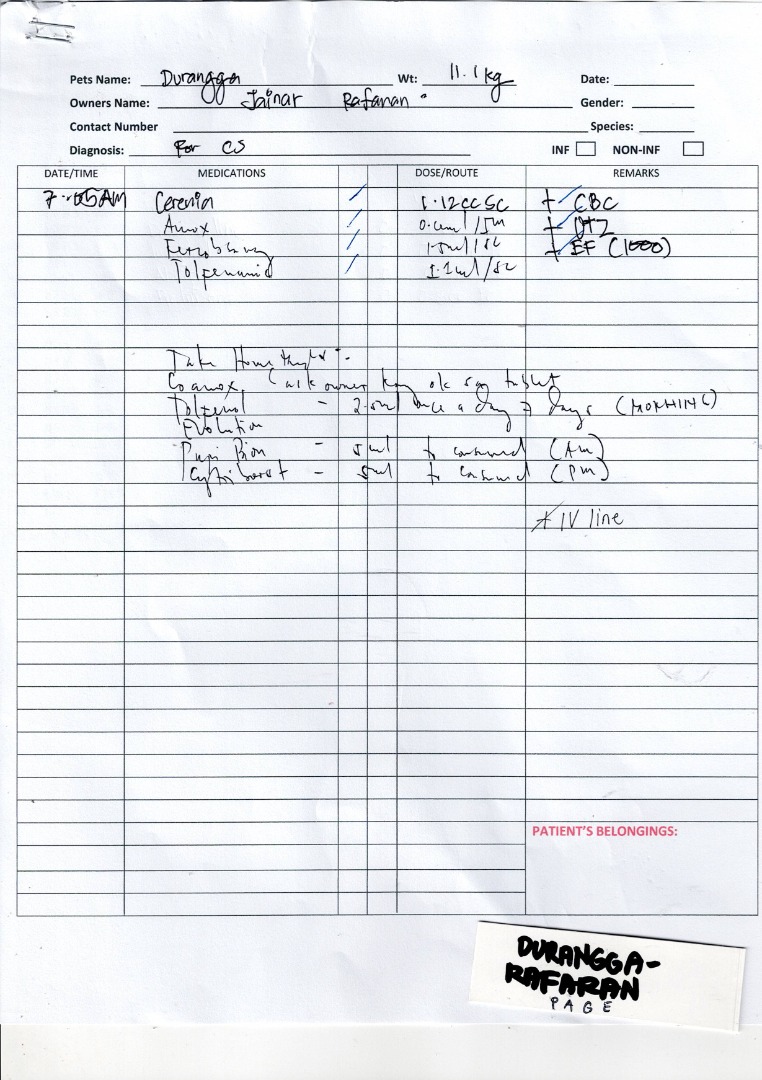 Pets Name: Durangga Wt: 11.1kg Date:
Owners Name: Jainar Rafanan Gender:
Contact Number Species:
Diagnosis: For CS INF NON-INF
DATE/TIME MEDICATIONS DOSE/ROUTE REMARKS
7:05AM Cerenia / 1.12cc SC + CBC
Amox /
/ 1.5ml/SC + EF (1000)
Tolfenamid / 1.1ml/SC
Take Home
Coamox (ask owner kay ok sya tablet
Tolfenol - 2.5ml once a day 7 days (MORNING)
Evolution
Papi Bion - 5ml to consumed (AM)
- 5ml to consumed (PM)
IV line
PATIENT'S BELONGINGS:
DURANGGA-
RAFARAN
PAGE